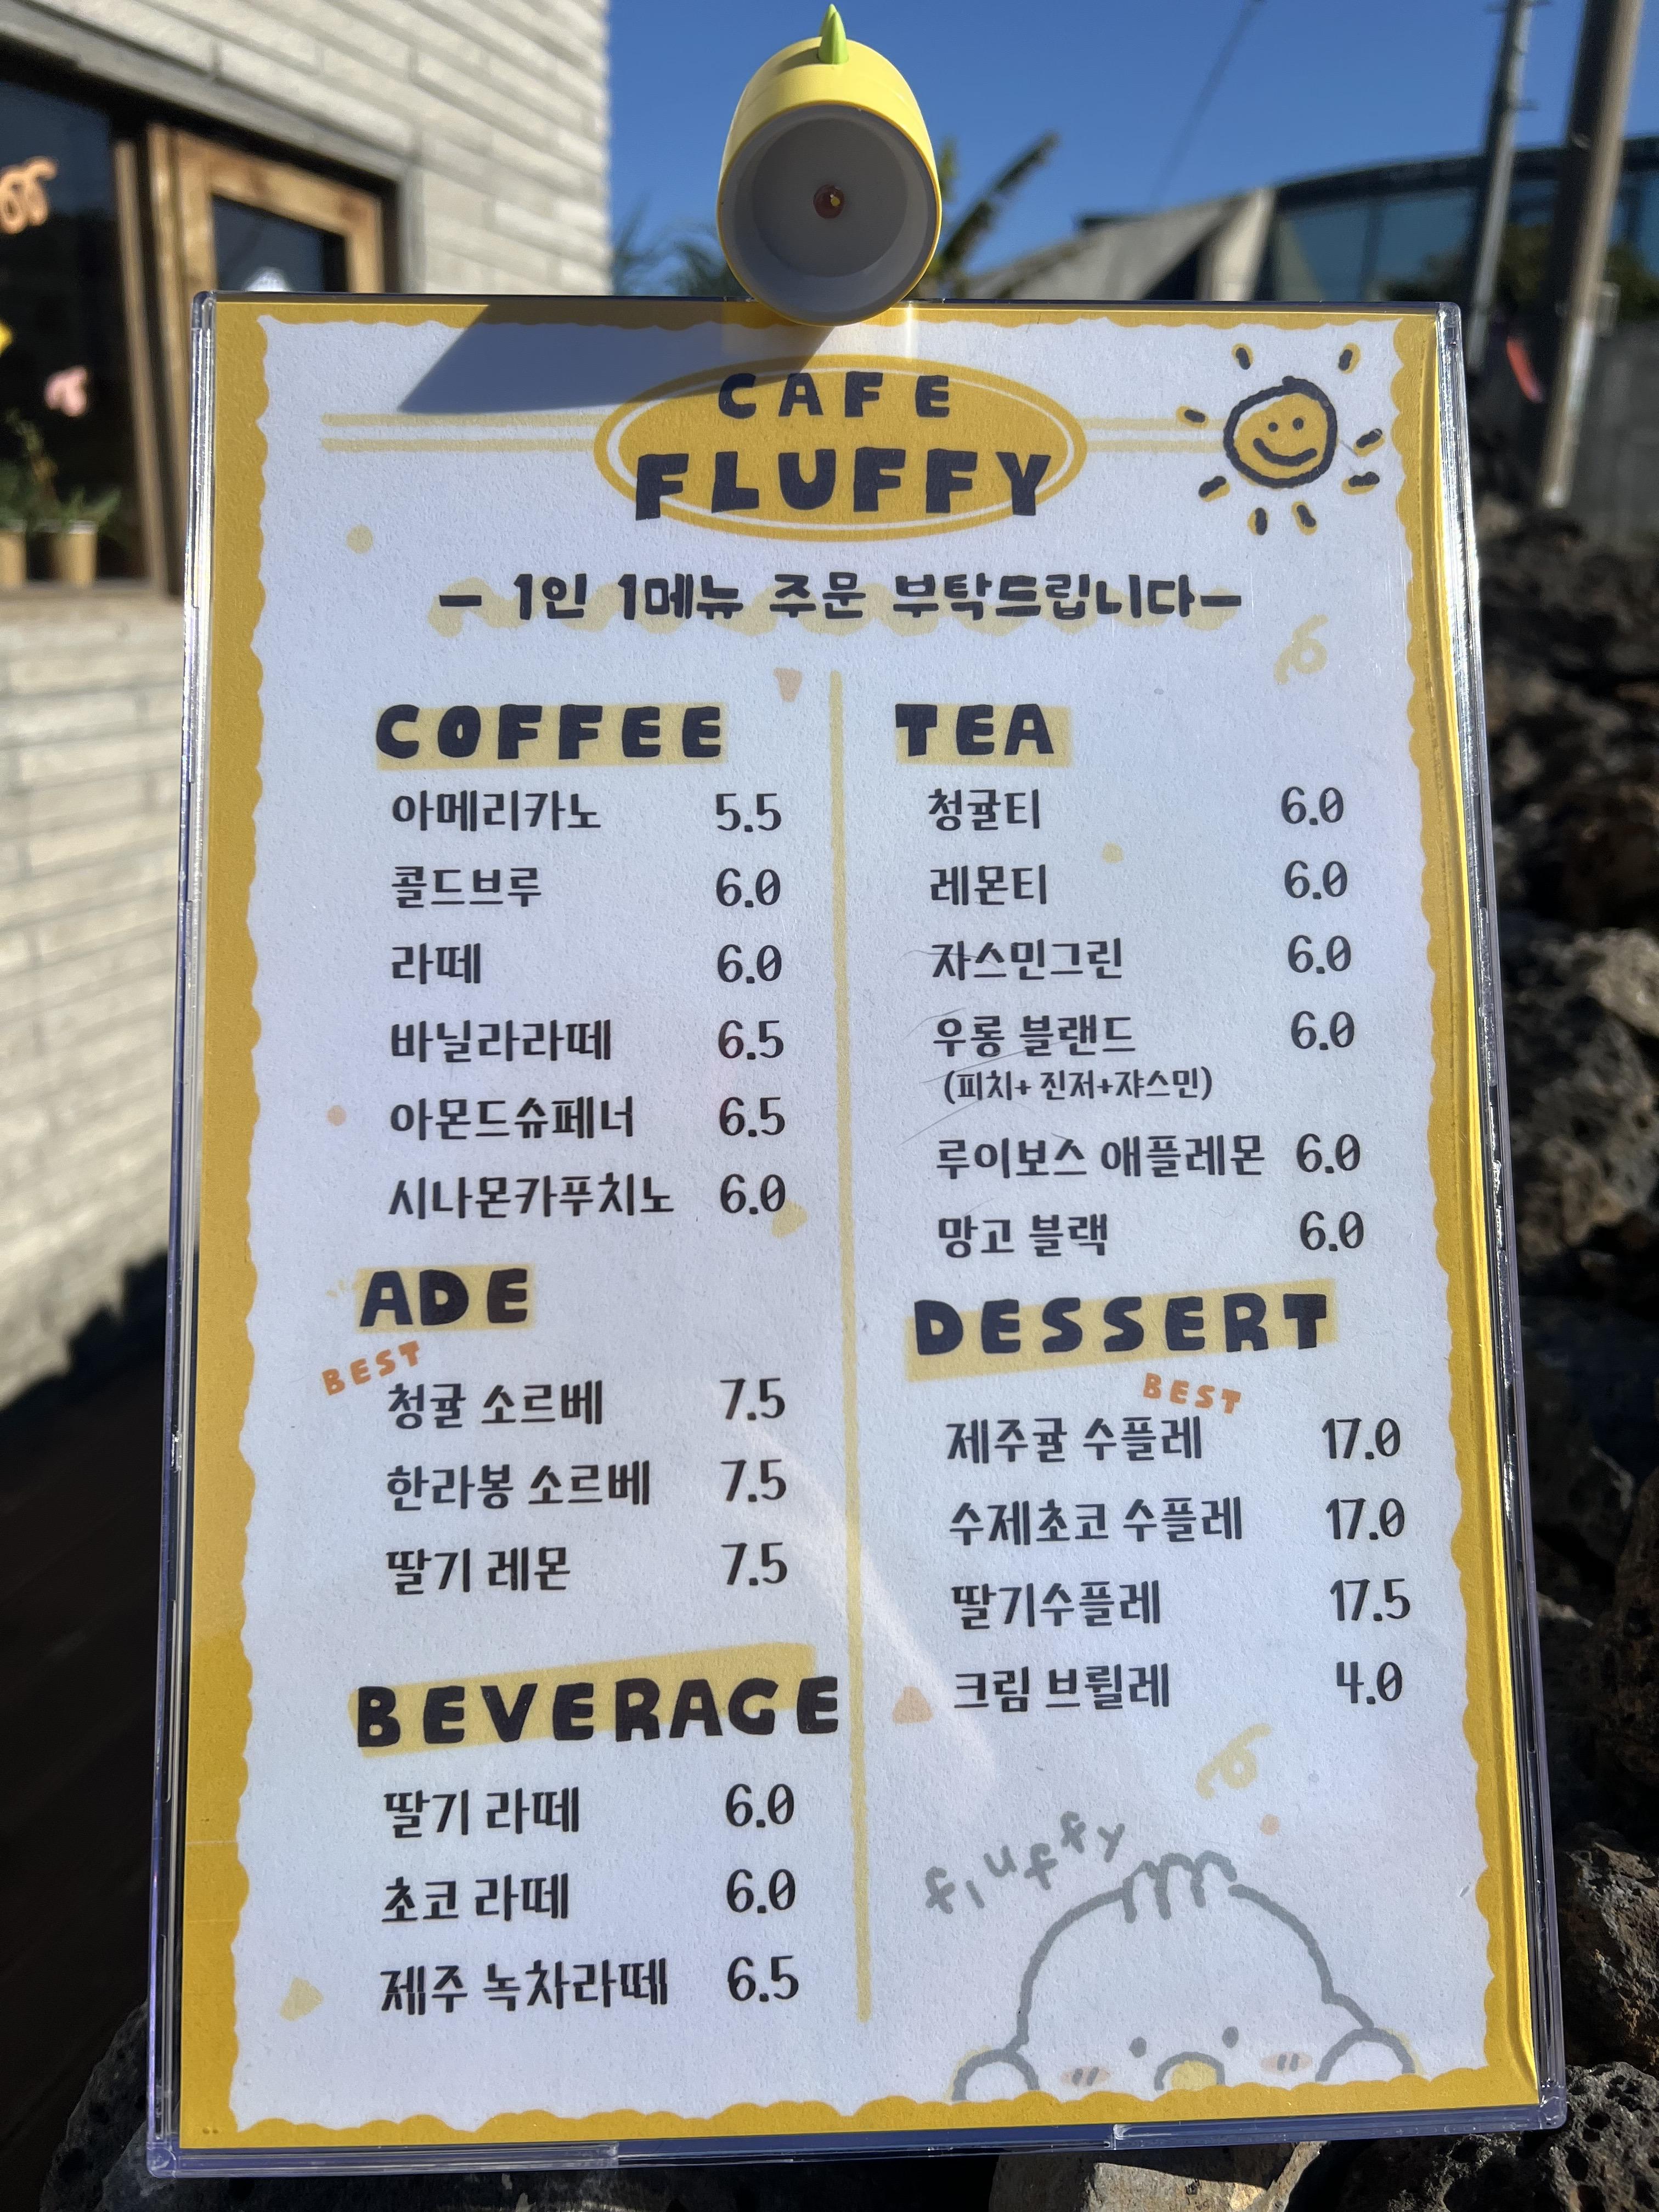 CAFE
FLUFFY
- 1인 1메뉴 주문 부탁드립니다-
COFFEE
아메리카노 5.5
콜드브루 6.0
라떼 6.0
바닐라라떼 6.5
아몬드슈페너 6.5
시나몬카푸치노 6.0
ADE
BEST
청귤 소르베 7.5
한라봉 소르베 7.5
딸기 레몬 7.5
BEVERAGE
딸기 라떼 6.0
초코 라떼 6.0
제주 녹차라떼 6.5
TEA
청귤티 6.0
레몬티 6.0
자스민그린 6.0
우롱 블랜드 6.0
(피치+ 진저+쟈스민)
루이보스 애플레몬 6.0
망고 블랙 6.0
DESSERT
BEST
제주귤 수플레 17.0
수제초코 수플레 17.0
딸기수플레 17.5
크림 브륄레 4.0
fluffy